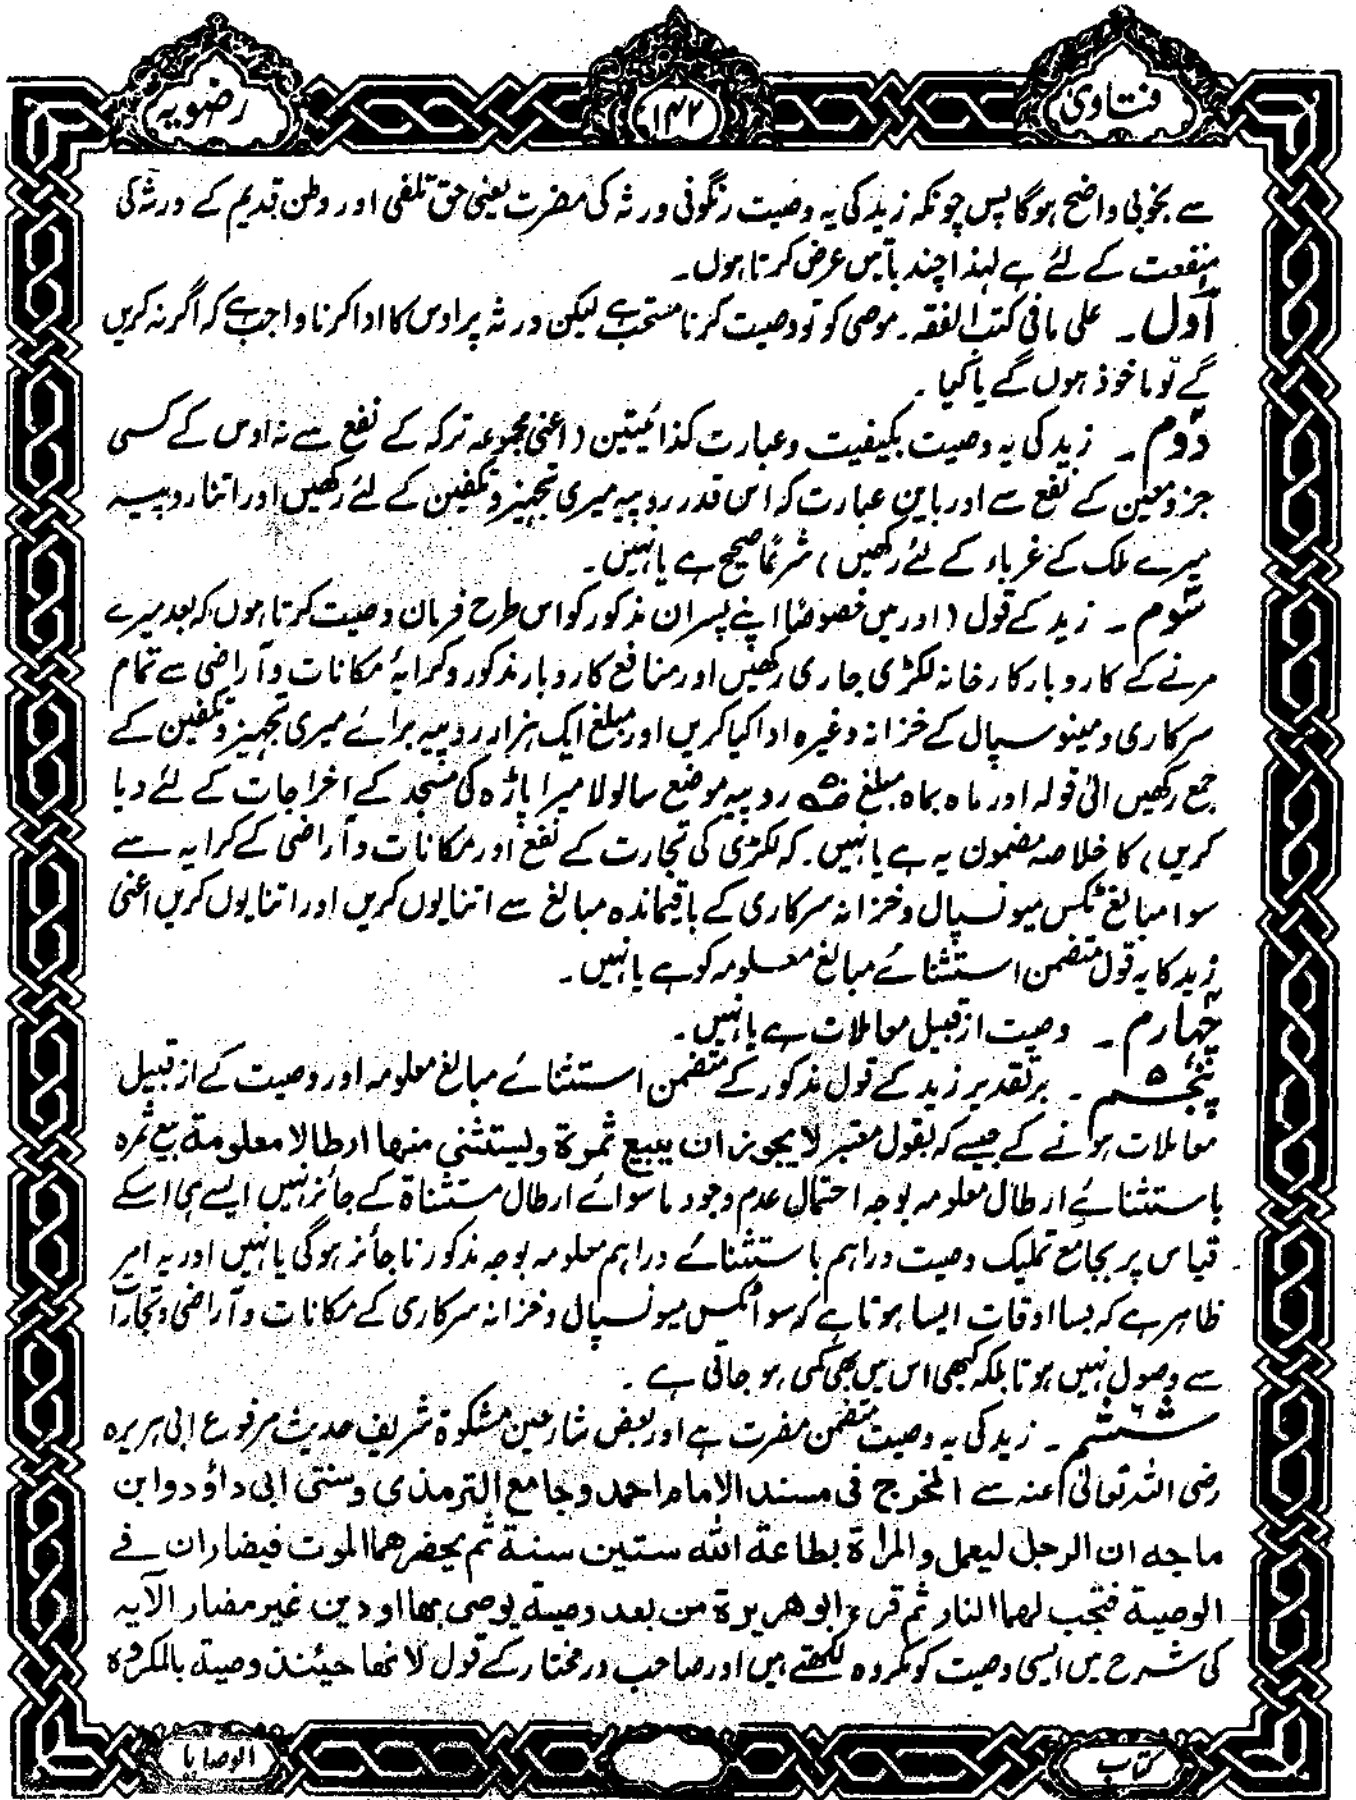 فتاوی
۱۴۲
رضویہ
سے بخوبی واضح ہوگا پس چونکہ زید کی یہ وصیت رنگونی ورثہ کی مضرت یعنی حق تلفی اور وطن قدیم کے ورثہ کی
منفعت کے لئے ہے لہذا چند باتیں عرض کرتا ہوں۔
اول۔ علی مافی کتب الفقہ۔ موصی کو تو وصیت کرنا مستحب ہے لیکن ورثہ پر اوس کا ادا کرنا واجب ہے کہ اگر نہ کریں
گے تو ماخوذ ہوں گے یا کیا۔
دوم۔ زید کی یہ وصیت بکیفیت وعبارت کذائیتین (اعنی مجموعہ ترکہ کے نفع سے نہ اوس کے کسی
جزو معین کے نفع سے اور باین عبارت کہ اس قدر روپیہ میری تجہیز وتکفین کے لئے رکھیں اور اتنا روپیہ
میرے ملک کے غرباء کے لئے رکھیں) شرعًا صحیح ہے یا نہیں۔
سوم۔ زید کے قول (اور میں خصوصًا اپنے پسران مذکور کو اس طرح فرمان وصیت کرتا ہوں کہ بعد میرے
مرنے کے کاروبار کارخانہ لکڑی جاری رکھیں اور منافع کاروبار مذکور وکرایۂ مکانات وآراضی سے تمام
سرکاری ومینوسپال کے خزانہ وغیرہ ادا کیا کریں اور مبلغ ایک ہزار روپیہ برائے میری تجہیز وتکفین کے
جمع رکھیں الی قولہ اور ماہ بماہ مبلغ روپیہ موضع سالولا میراپاڑہ کی مسجد کے اخراجات کے لئے دیا
کریں) کا خلاصہ مضمون یہ ہے یا نہیں۔ کہ لکڑی کی تجارت کے نفع اور مکانات وآراضی کے کرایہ سے
سوا مبالغ ٹکس میونسپال وخزانہ سرکاری کے باقیماندہ مبالغ سے اتنا یوں کریں اور اتنا یوں کریں اعنی
زید کا یہ قول متضمن استثنائے مبالغ معلومہ کو ہے یا نہیں۔
چہارم۔ وصیت ازقبیل معاملات ہے یا نہیں۔
پنجم ۵۔ برتقدیر زید کے قول مذکور کے متضمن استثنائے مبالغ معلومہ اور وصیت کے ازقبیل
معاملات ہونے کے جیسے کہ بقول معتبر لا یجوز ان یبیع ثمرۃ ویستثنی منها ارطالا معلومة بیع ثمرہ
باستثنائے ارطال معلومہ بوجہ احتمال عدم وجود ماسوائے ارطال مستثناۃ کے جائز نہیں ایسے ہی اسکے
قیاس پر بجامع تملیک وصیت دراہم باستثنائے دراہم معلومہ بوجہ مذکور ناجائز ہوگی یا نہیں اور یہ امر
ظاہر ہے کہ بسا اوقات ایسا ہوتا ہے کہ سوا ٹکس میونسپالی وخزانہ سرکاری کے مکانات وآراضی وتجارات
سے وصول نہیں ہوتا بلکہ کبھی اس میں بھی کمی ہوجاتی ہے۔
ششم ۶۔ زید کی یہ وصیت متضمن مضرت ہے اور بعض شارحین مشکوۃ شریف حدیث مرفوع ابی ہریرہ
رضی اللہ تعالٰی عنہ سے المخرج فی مسند الامام احمد وجامع الترمذی وسنتی ابی داؤد وابن
ماجه ان الرجل لیعمل والمراۃ بطاعة الله ستین سنة ثم یحضرهما الموت فیضاران فے
الوصیة فتجب لهما النار ثم قرء ابوهریرۃ من بعد وصیة یوصی بها او دین غیر مضار الآیہ
کی شرح میں ایسی وصیت کو مکروہ لکھتے ہیں اور صاحب درمختار کے قول لانها حینئذ وصیة بالمکروہ
کتاب
الوصایا